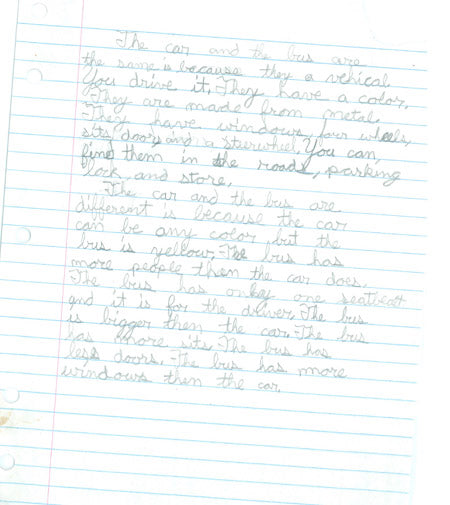 The car and the bus are
the same is because they a vehical
You drive it, They have a color,
They are made from metal.
They have windows, four wheels,
sits, doors, and a steerwheel. You can,
find them in the roads, parking
lock and store,
The car and the bus are
different is because the car
can be any color, but the
bus is yellow. The bus has
more people then the car does.
The bus has only one seatbeat
and it is for the driver. The bus
is bigger then the car. The bus
has more sits. The bus has
less doors. The bus has more
windows then the car.